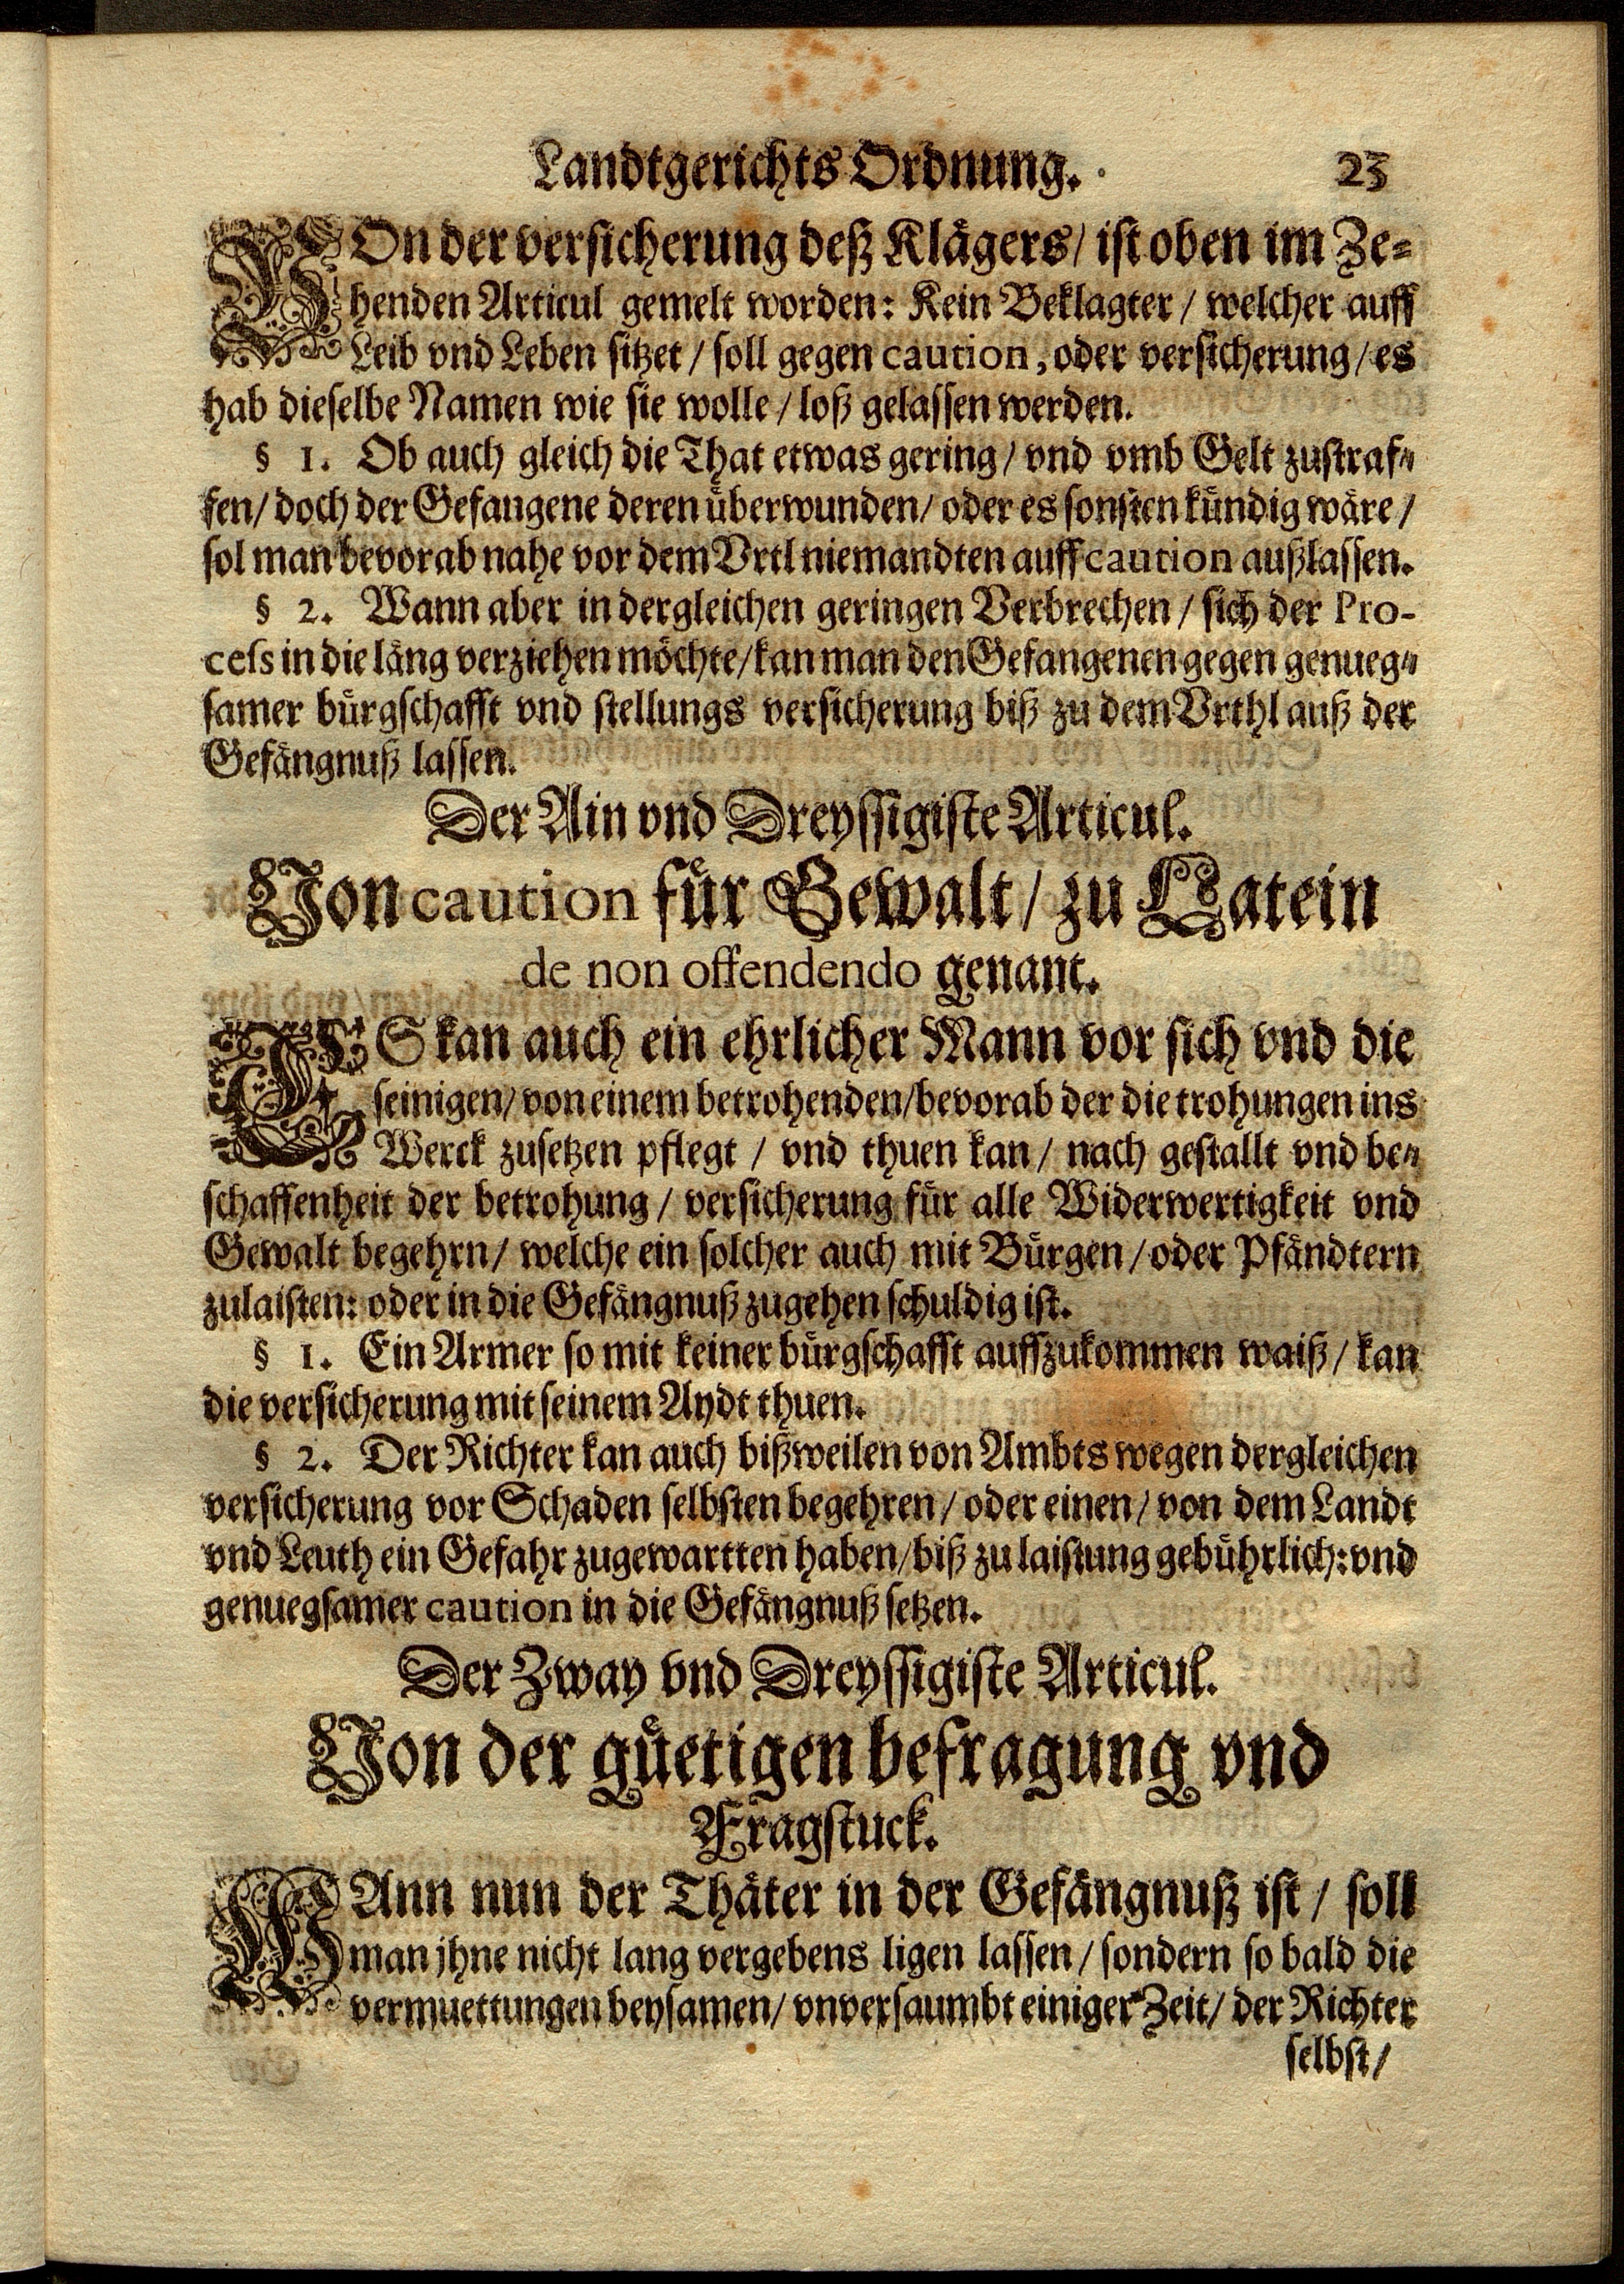 Landtgerichts Ordnung. 23
VOn der versicherung deß Klägers / ist oben im Ze=
henden Articul gemelt worden: Kein Beklagter / welcher auff
Leib vnd Leben sitzet / soll gegen caution, oder versicherung / es
hab dieselbe Namen wie sie wolle / loß gelassen werden.
§ 1. Ob auch gleich die That etwas gering / vnd vmb Gelt zustraf=
fen / doch der Gefangene deren überwunden / oder es sonsten kündig wäre /
sol man bevorab nahe vor dem Vrtl niemandten auff caution außlassen.
§ 2. Wann aber in dergleichen geringen Verbrechen / sich der Pro-
cess in die läng verziehen möchte / kan man den Gefangenen gegen genueg=
samer bürgschafft vnd stellungs versicherung biß zu dem Vrthl auß der
Gefängnuß lassen.
Der Ain vnd Dreyssigiste Articul.
Von caution für Gewalt / zu Latein
de non offendendo genant.
ES kan auch ein ehrlicher Mann vor sich vnd die
seinigen / von einem betrohenden / bevorab der die trohungen ins
Werck zusetzen pflegt / vnd thuen kan / nach gestallt vnd be=
schaffenheit der betrohung / versicherung für alle Widerwertigkeit vnd
Gewalt begehrn / welche ein solcher auch mit Bürgen / oder Pfändtern
zulaisten: oder in die Gefängnuß zugehen schuldig ist.
§ 1. Ein Armer so mit keiner bürgschafft auffzukommen waiß / kan
die versicherung mit seinem Aydt thuen.
§ 2. Der Richter kan auch bißweilen von Ambts wegen dergleichen
versicherung vor Schaden selbsten begehren / oder einen / von dem Landt
vnd Leuth ein Gefahr zugewartten haben / biß zu laistung gebührlich: vnd
genuegsamer caution in die Gefängnuß setzen.
Der Zway vnd Dreyssigiste Articul.
Von der güetigen befragung vnd
Fragstuck.
WAnn nun der Thäter in der Gefängnuß ist / soll
man jhne nicht lang vergebens ligen lassen / sondern so bald die
vermuettungen beysamen / vnversaumbt einiger Zeit / der Richter
selbst /